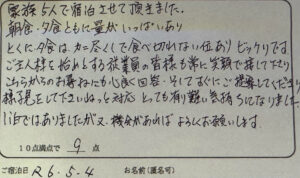 家族5人で宿泊させて頂きました。
朝食・夕食ともに量がいっぱいあり
とくに夕食は、カニ尽くしで食べ切れない位あり ビックリです
ご主人様を始めとする従業員の皆様も常に笑顔で接して下さり
こちらからのお尋ねにも心良く回答、そしてすぐにご提案してくださり
様を正して下さいねっと対応 とっても有り難い気持ちになりました。
1泊ではありましたが又、機会があれば よろしくお願いします。
10点満点で 9 点
ご宿泊日 R6.5.4 お名前(匿名可)